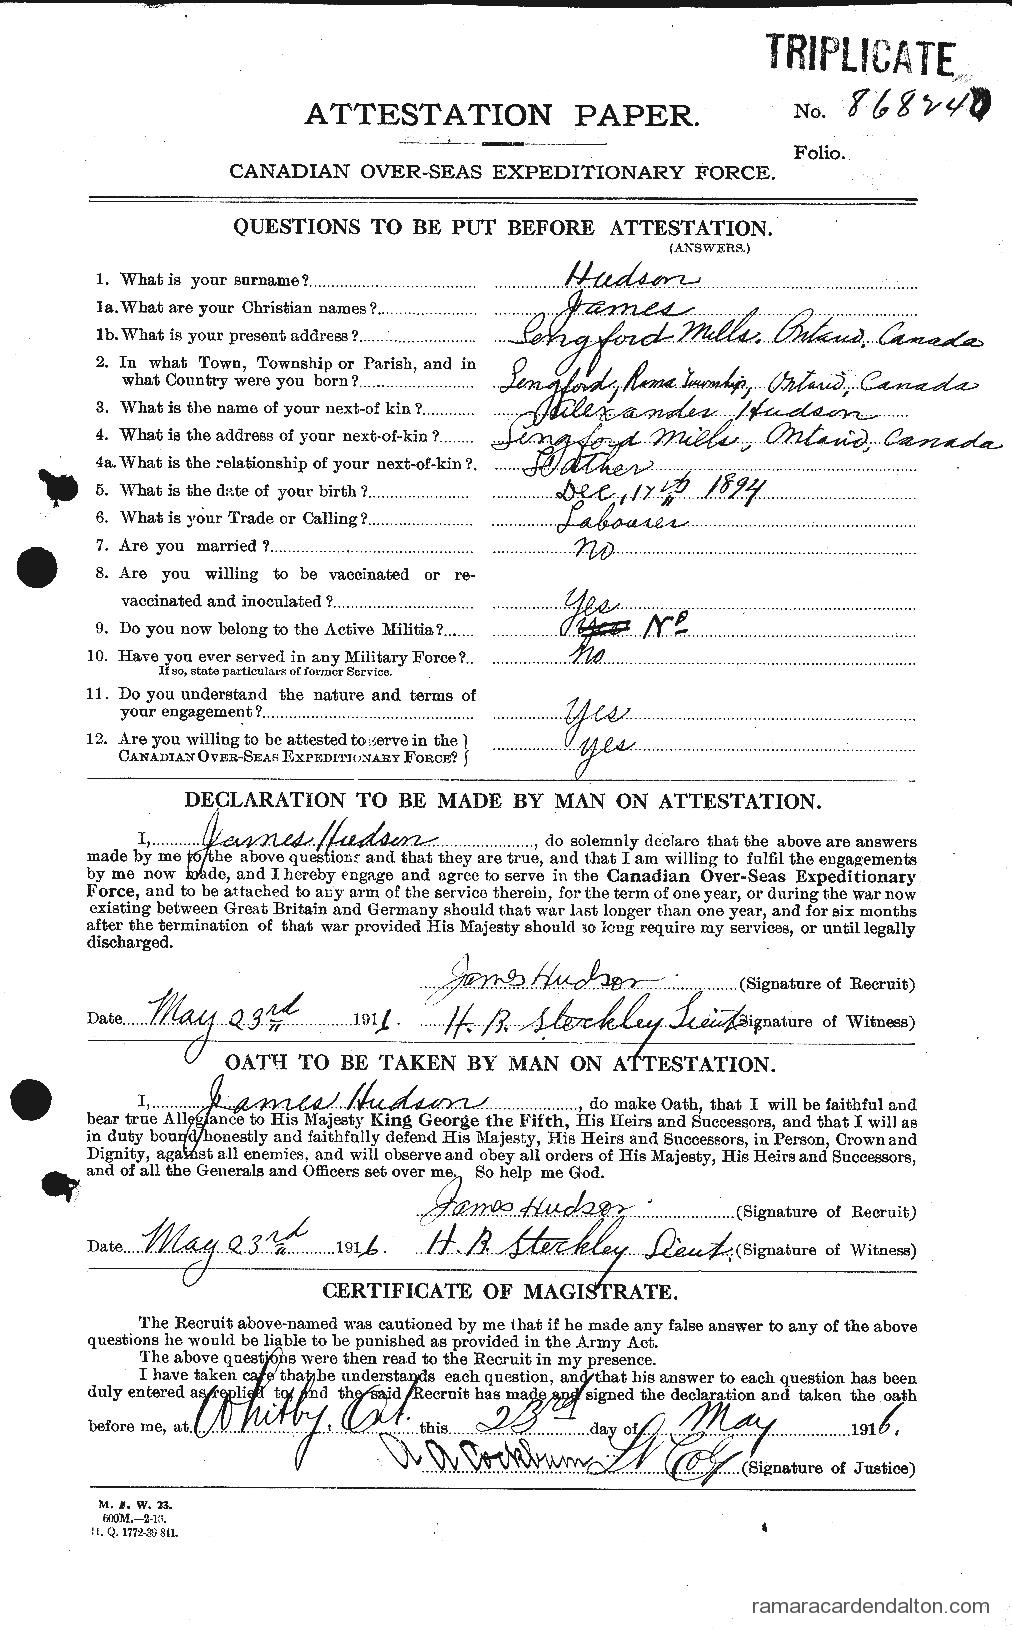 TRIPLICATE
ATTESTATION PAPER.
No. 868240
Folio.
CANADIAN OVER-SEAS EXPEDITIONARY FORCE.
QUESTIONS TO BE PUT BEFORE ATTESTATION.
(ANSWERS.)
1. What is your surname? Hudson
1a. What are your Christian names? James
1b. What is your present address? Longford Mills, Ontario, Canada
2. In what Town, Township or Parish, and in
what Country were you born? Longford, Rama Township, Ontario, Canada
3. What is the name of your next-of kin? Alexander Hudson
4. What is the address of your next-of-kin? Longford Mills, Ontario, Canada
4a. What is the relationship of your next-of-kin? Father
5. What is the date of your birth? Dec, 17th 1894
6. What is your Trade or Calling? Labourer
7. Are you married? No
8. Are you willing to be vaccinated or re-
vaccinated and inoculated? Yes
9. Do you now belong to the Active Militia? No
10. Have you ever served in any Military Force? No
If so, state particulars of former Service.
11. Do you understand the nature and terms of
your engagement? Yes
12. Are you willing to be attested to serve in the
CANADIAN OVER-SEAS EXPEDITIONARY FORCE? yes
DECLARATION TO BE MADE BY MAN ON ATTESTATION.
I, James Hudson, do solemnly declare that the above are answers
made by me to the above questions and that they are true, and that I am willing to fulfil the engagements
by me now made, and I hereby engage and agree to serve in the Canadian Over-Seas Expeditionary
Force, and to be attached to any arm of the service therein, for the term of one year, or during the war now
existing between Great Britain and Germany should that war last longer than one year, and for six months
after the termination of that war provided His Majesty should so long require my services, or until legally
discharged.
James Hudson (Signature of Recruit)
Date May 23rd 1916. H. B. Steckley Lieut (Signature of Witness)
OATH TO BE TAKEN BY MAN ON ATTESTATION.
I, James Hudson, do make Oath, that I will be faithful and
bear true Allegiance to His Majesty King George the Fifth, His Heirs and Successors, and that I will as
in duty bound honestly and faithfully defend His Majesty, His Heirs and Successors, in Person, Crown and
Dignity, against all enemies, and will observe and obey all orders of His Majesty, His Heirs and Successors,
and of all the Generals and Officers set over me. So help me God.
James Hudson (Signature of Recruit)
Date May 23rd 1916. H. B. Steckley Lieut. (Signature of Witness)
CERTIFICATE OF MAGISTRATE.
The Recruit above-named was cautioned by me that if he made any false answer to any of the above
questions he would be liable to be punished as provided in the Army Act.
The above questions were then read to the Recruit in my presence.
I have taken care that he understands each question, and that his answer to each question has been
duly entered as replied to, and the said Recruit has made and signed the declaration and taken the oath
before me, at Whitby, Ont. this 23rd day of May 1916.
A A Cockburn Lt Col (Signature of Justice)
M. F. W. 23.
600M.—2-16.
H. Q. 1772-39 841.
ramaracardendalton.com